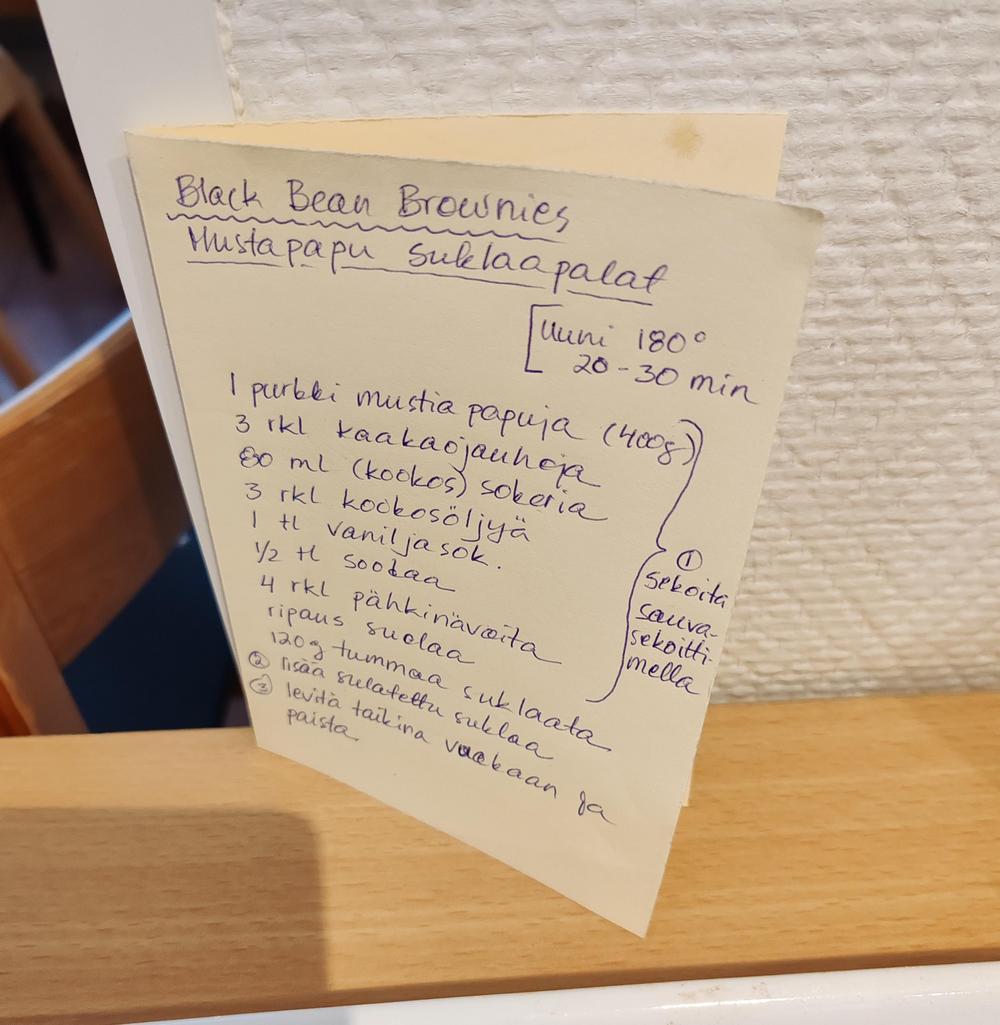 Black Bean Brownies
Mustapapu Suklaapalat
Uuni 180°
20-30 min
1 purkki mustia papuja (400g)
3 rkl kaakaojauheja
80 ml (kookos) sokeria
3 rkl kookosöljyä
1 tl vaniljasok.
1/2 tl soodaa
4 rkl pähkinävoita
ripaus suolaa
120g tummaa suklaata
① sekoita
sauva-
sekoitti-
mella
② lisää sulatettu suklaa
③ levitä taikina vuokaan ja
paista